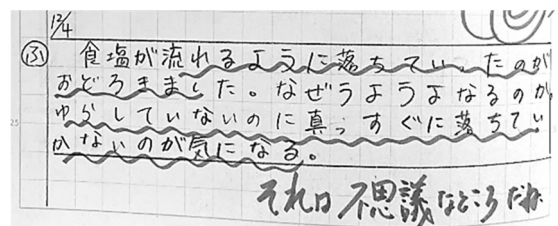 12/4
ふ 食塩が流れるように落ちていったのが
おどろきました。なぜうようよなるのか
ゆらしていないのに真っすぐに落ちてい
かないのが気になる。
それは不思議なところだね